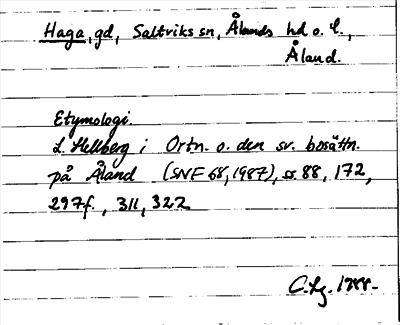 Haga, gd, Saltviks sn, Ålands hd o. l.,
Åland.
Etymologi.
L. Hellberg i Ortn. o. den sv. bosättn.
på Åland (SNF 68, 1987), ss. 88, 172,
297f., 311, 322
C. Lg. 1988.